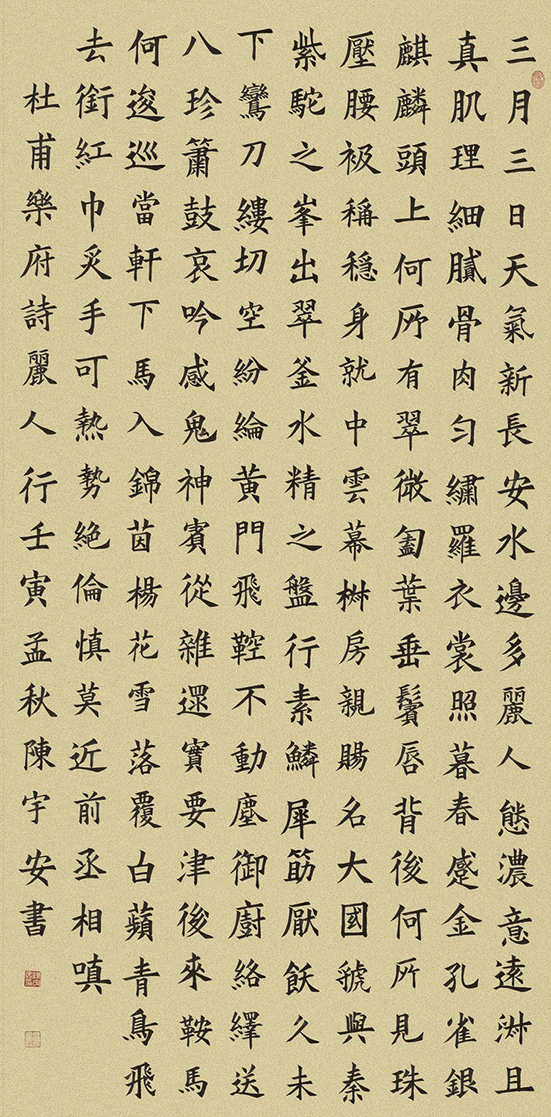 三月三日天氣新長安水邊多麗人態濃意遠淑且
真肌理細膩骨肉勻繡羅衣裳照暮春蹙金孔雀銀
麒麟頭上何所有翠微㔩葉垂鬢唇背後何所見珠
壓腰衱稱穩身就中雲幕椒房親賜名大國虢與秦
紫駝之峯出翠釜水精之盤行素鱗犀筯厭飫久未
下鸞刀縷切空紛綸黃門飛鞚不動塵御廚絡繹送
八珍簫鼓哀吟感鬼神賓從雜遝實要津後來鞍馬
何逡巡當軒下馬入錦茵楊花雪落覆白蘋青鳥飛
去銜紅巾炙手可熱勢絕倫慎莫近前丞相嗔
杜甫樂府詩麗人行壬寅孟秋陳宇安書